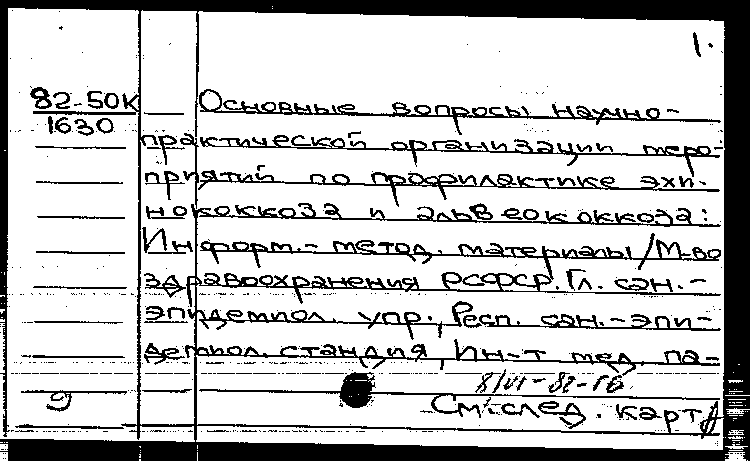 1.
82-50К
1630
Основные вопросы научно-
практической организации меро-
приятий по профилактике эхи-
нококкоза и альвеококкоза:
Информ.-метод. материалы/М-во
здравоохранения РСФСР. Гл. сан.-
эпидемиол. упр., Респ. сан.-эпи-
демиол. станция, Ин-т мед. па-
8/VI-82-ГБ
9 См. след. карт